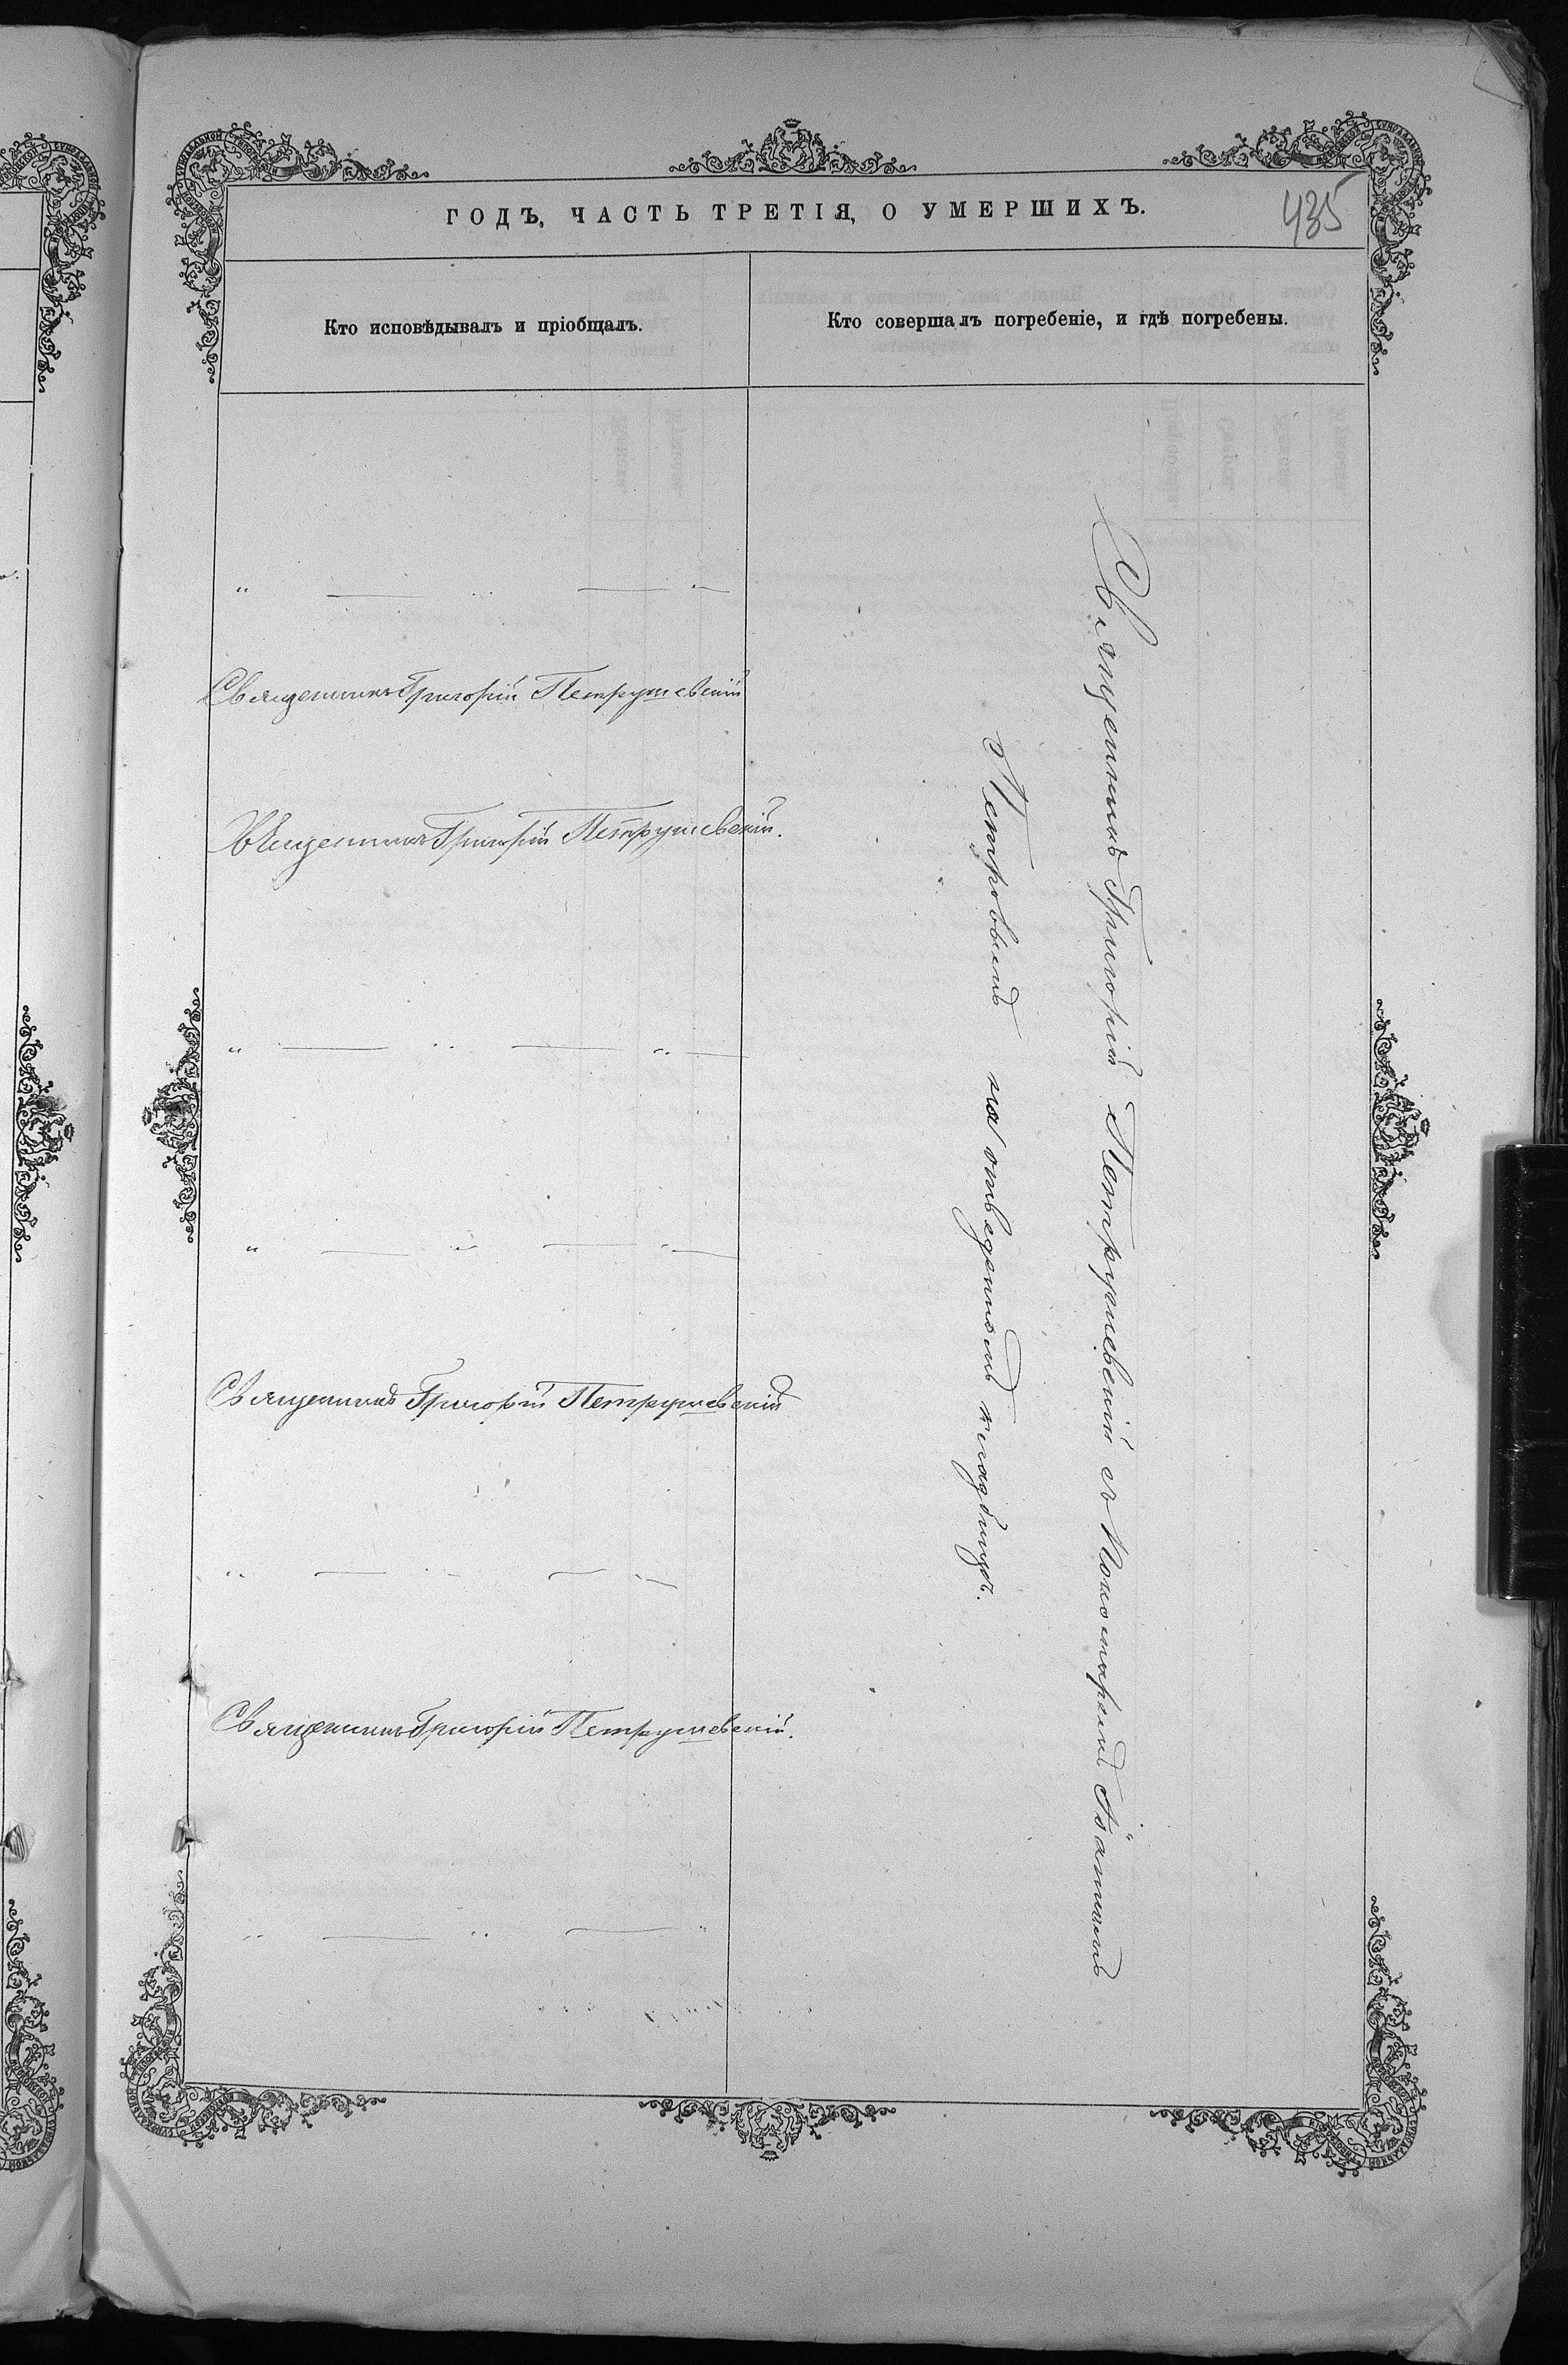 ГОДЪ, ЧАСТЬ ТРЕТІЯ, О УМЕРШИХЪ.
435
Кто исповѣдывалъ и пріобщалъ.
Кто совершалъ погребеніе, и гдѣ погребены.
" — " — " —
Священникъ Григорій Петрушевскій
Священникъ Григорій Петрушевскій.
" — " — " —
" — " — " —
Священникъ Григорій Петрушевскій
" — " — " —
Священникъ Григорій Петрушевскій.
" — " — "
Священникъ Григорій Петрушевскій съ Псаломщикомъ
Петровымъ на отведенномъ кладбищѣ.